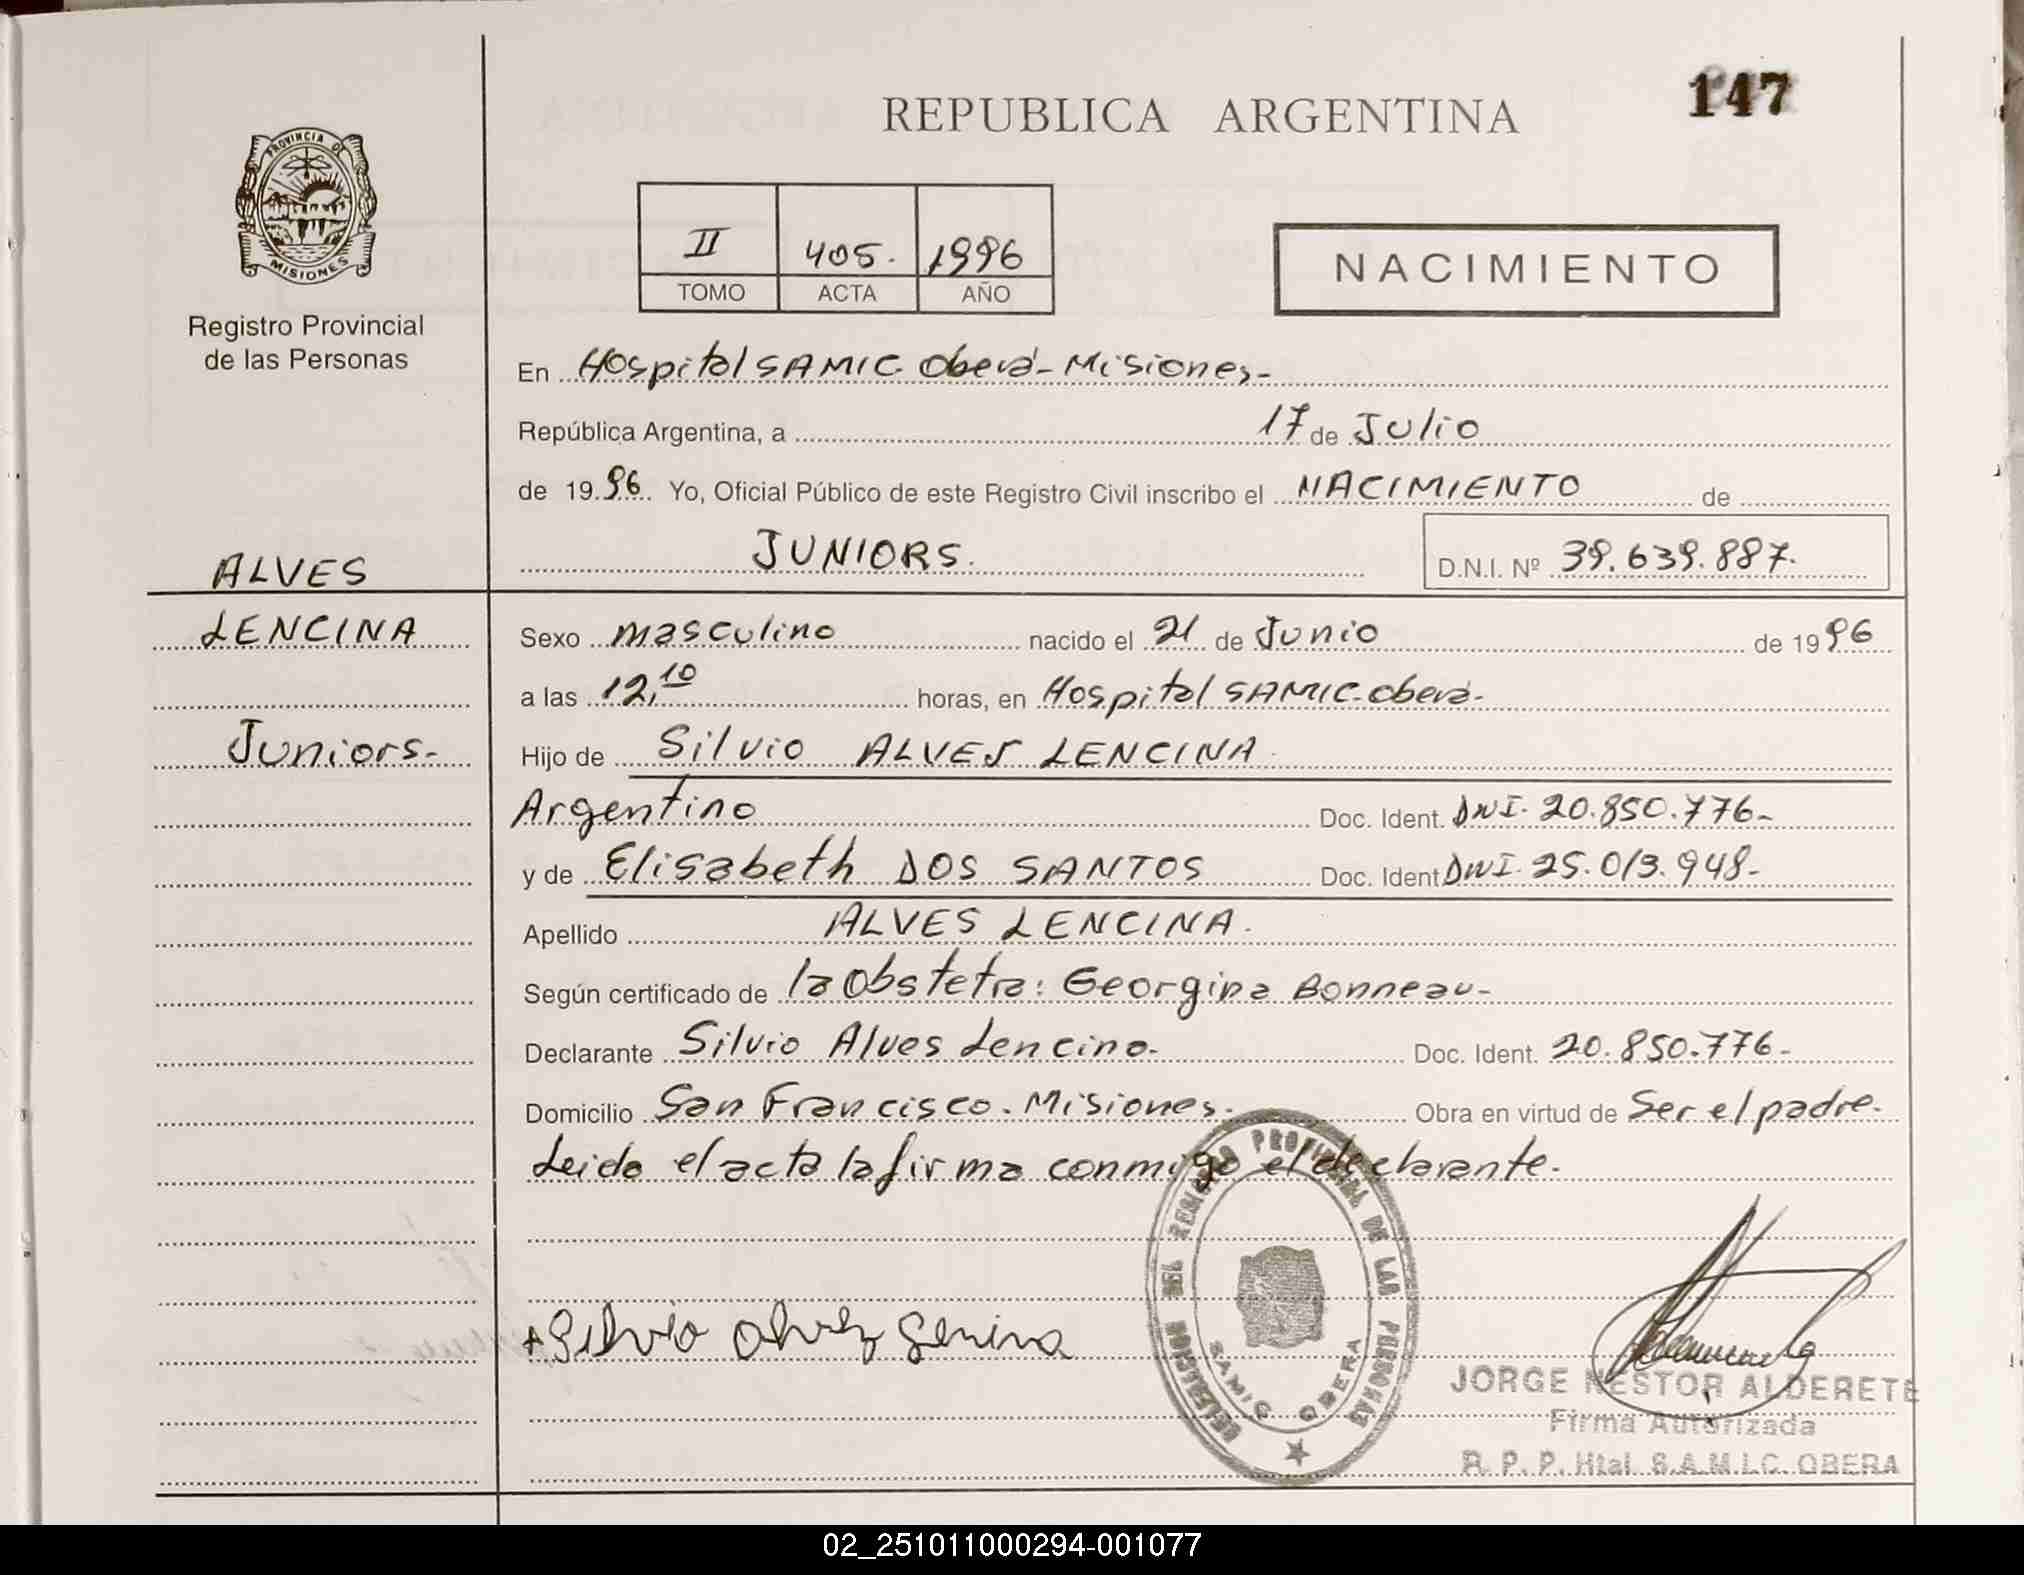 147
REPUBLICA ARGENTINA
PROVINCIA DE
MISIONES
Registro Provincial
de las Personas
II 405. 1996
TOMO ACTA AÑO
NACIMIENTO
En Hospital SAMIC Oberá - Misiones -
República Argentina, a 17 de Julio
de 1996. Yo, Oficial Público de este Registro Civil inscribo el NACIMIENTO de
JUNIORS. D.N.I. Nº 39.639.887.
ALVES
LENCINA
Juniors-
Sexo masculino nacido el 21 de Junio de 1996
a las 12,10 horas, en Hospital SAMIC-Oberá-
Hijo de Silvio ALVES LENCINA
Argentino Doc. Ident. DNI. 20.850.776-
y de Elisabeth DOS SANTOS Doc. Ident DNI. 25.013.948-
Apellido ALVES LENCINA.
Según certificado de la Obstetra: Georgina Bonneau-
Declarante Silvio Alves Lencina- Doc. Ident. 20.850.776-
Domicilio San Francisco. Misiones. Obra en virtud de Ser el padre.
Leida el acta la firma conmigo el declarante.
+ Silvio Alvez
DELEGACION DEL REGISTRO PROVINCIAL DE LAS PERSONAS
SAMIC OBERA
JORGE NESTOR ALDERETE
Firma Autorizada
R. P. P. Htal. S.A.M.I.C. OBERA
02_251011000294-001077